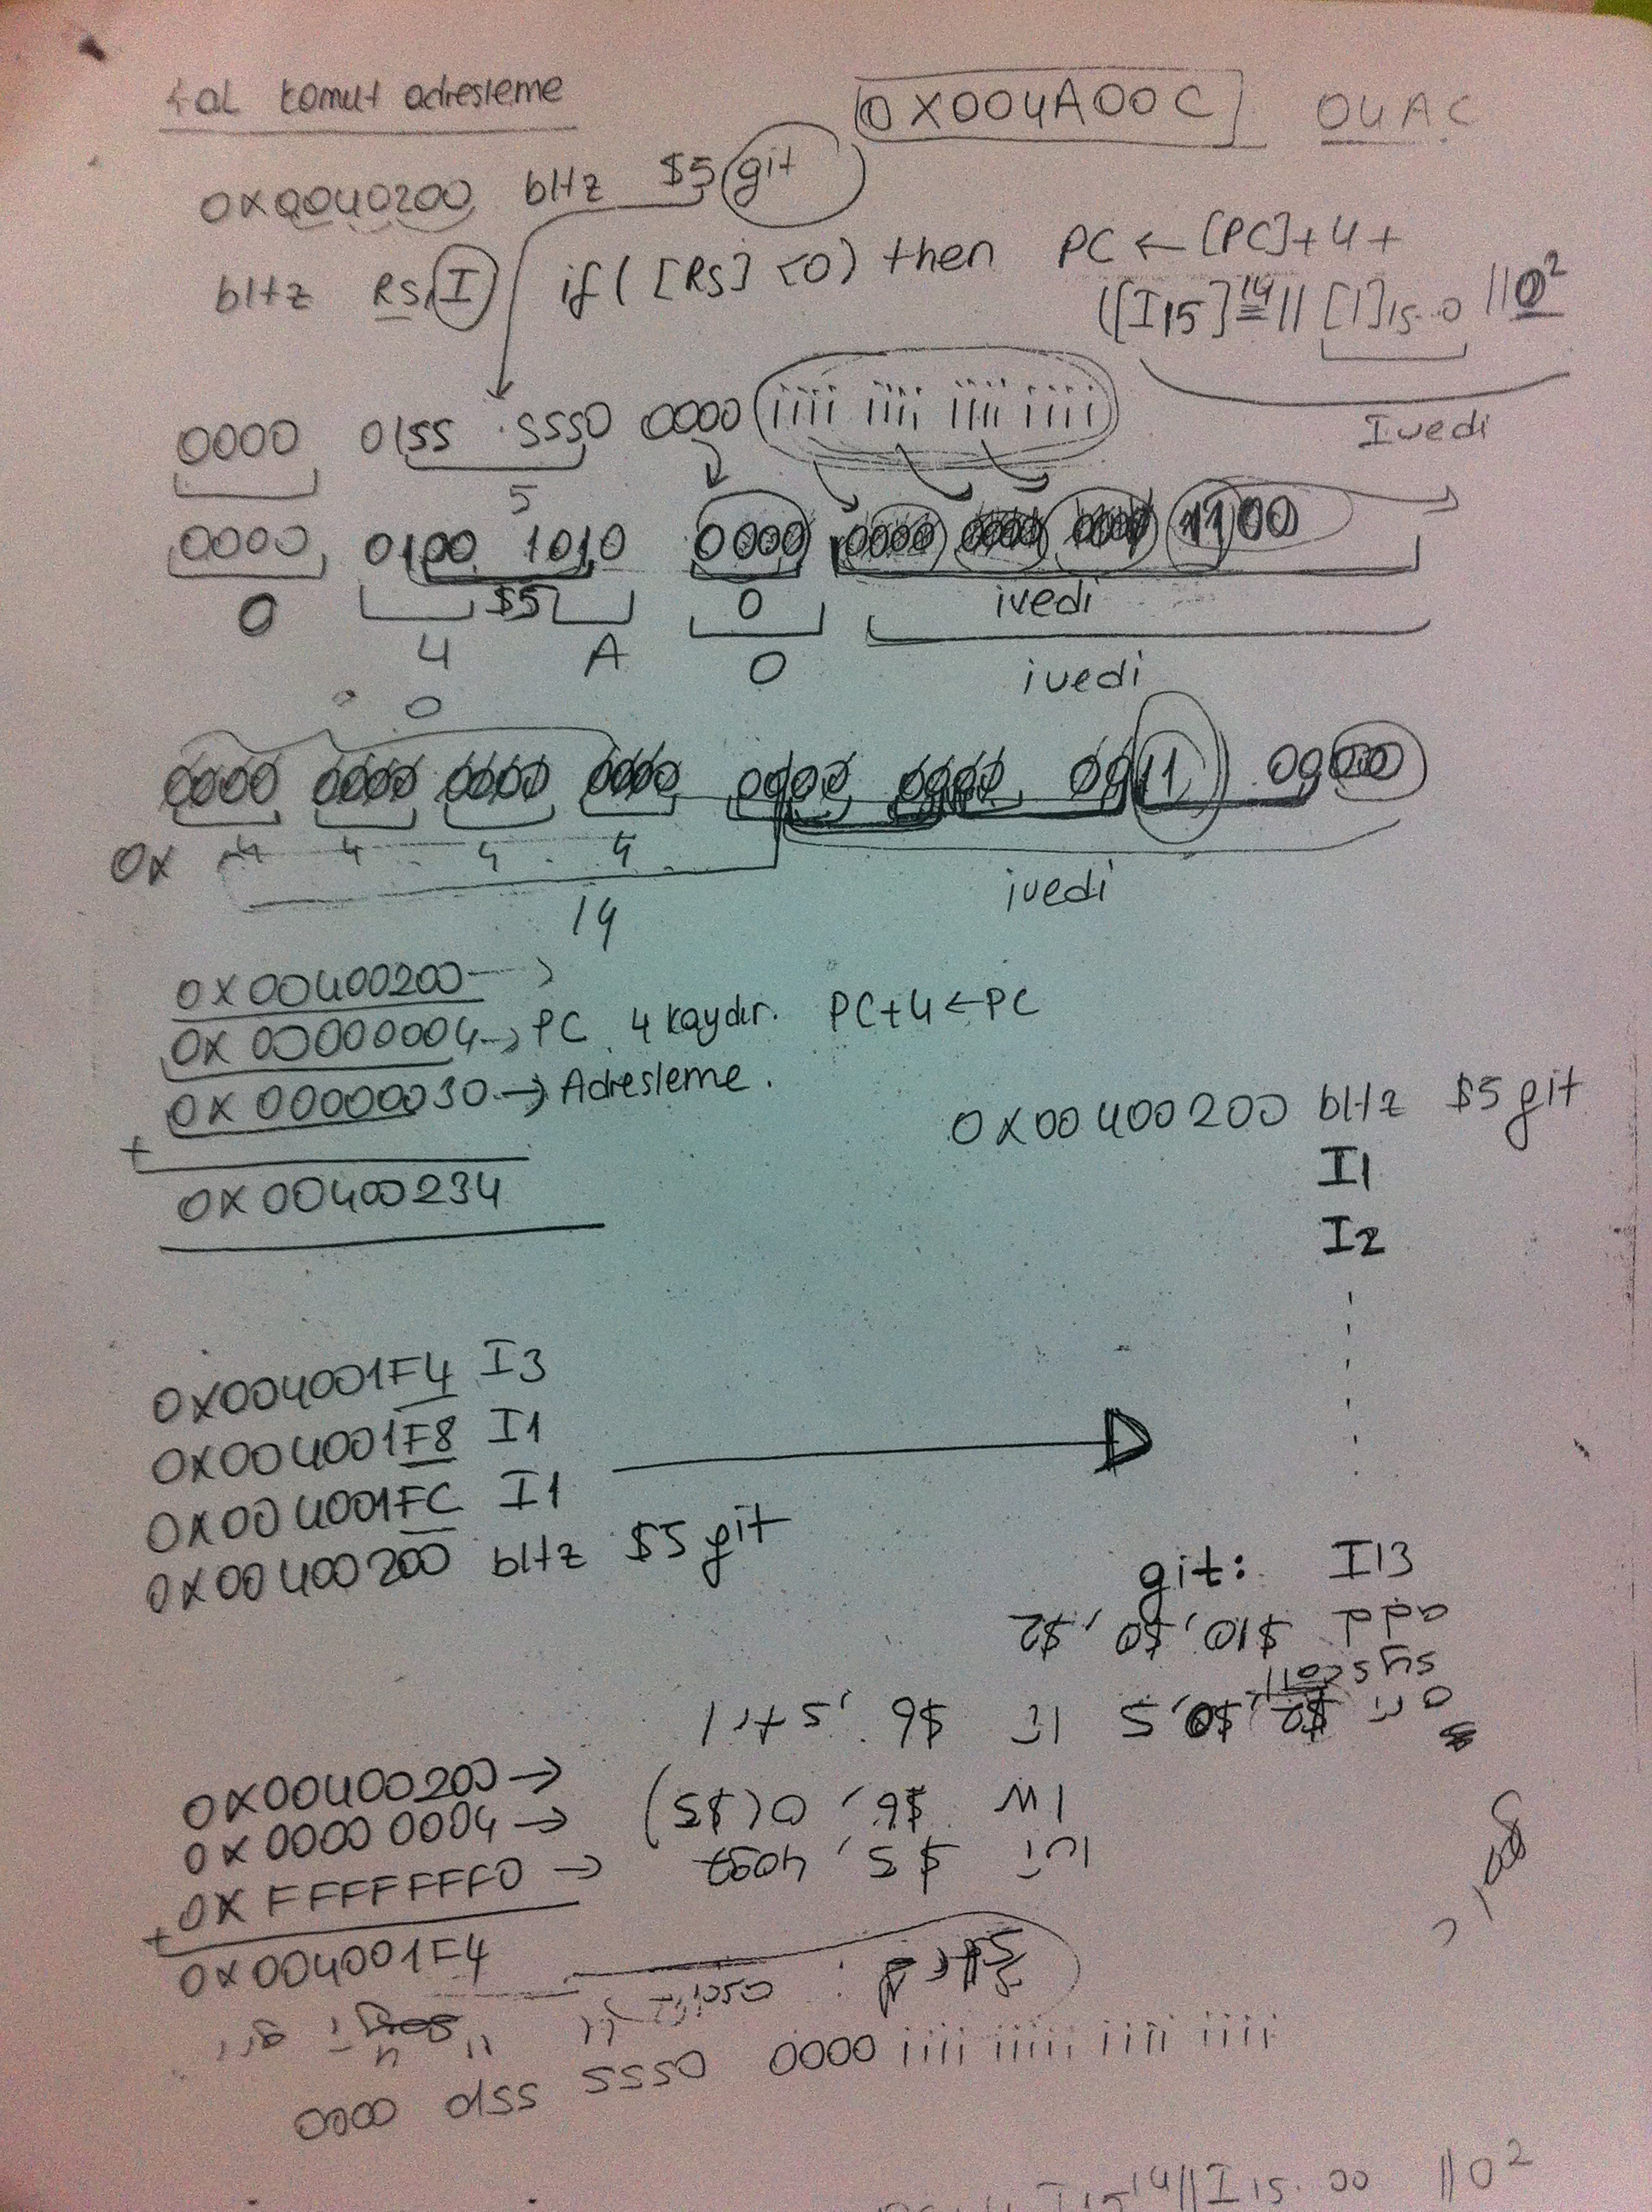 komut adresleme
0X004A00C 04AC
0X0040200 bltz $5 git
bltz Rs, I if ( [Rs] <0) then PC ← [PC]+4+
([I15]14 || [I]15..0 || 0²
Ivedi
0000 01ss sss0 0000 iiii iiii iiii iiii
5
0000 0100 1010 0000 0000 0000 0000 1100
0 $5 0 ivedi
4 A 0 ivedi
0
0000 0000 0000 0000 0000 0000 0011 0000
0x 4 4 4 4
14 ivedi
0x00400200
0x00000004 → PC 4 kaydır. PC+4 ← PC
0x00000030 → Adresleme.
+
0x00400234
0x00400200 bltz $5 git
I1
I2
0x004001F4 I3
0x004001F8 I1
0x004001FC I1
0x00400200 bltz $5 git
git: I13
add $10, $0, $2
syscall
ori $2, $0, 5 li $6, 5
lw $6, 0($5)
lui $5, 4097
0x00400200 →
0x0000 0004 →
0x FFFFFFF0 →
+
0x004001F4
0000 01ss sss0 0000 iiii iiii iiii iiii
I15 14 || I15..00 || 0²